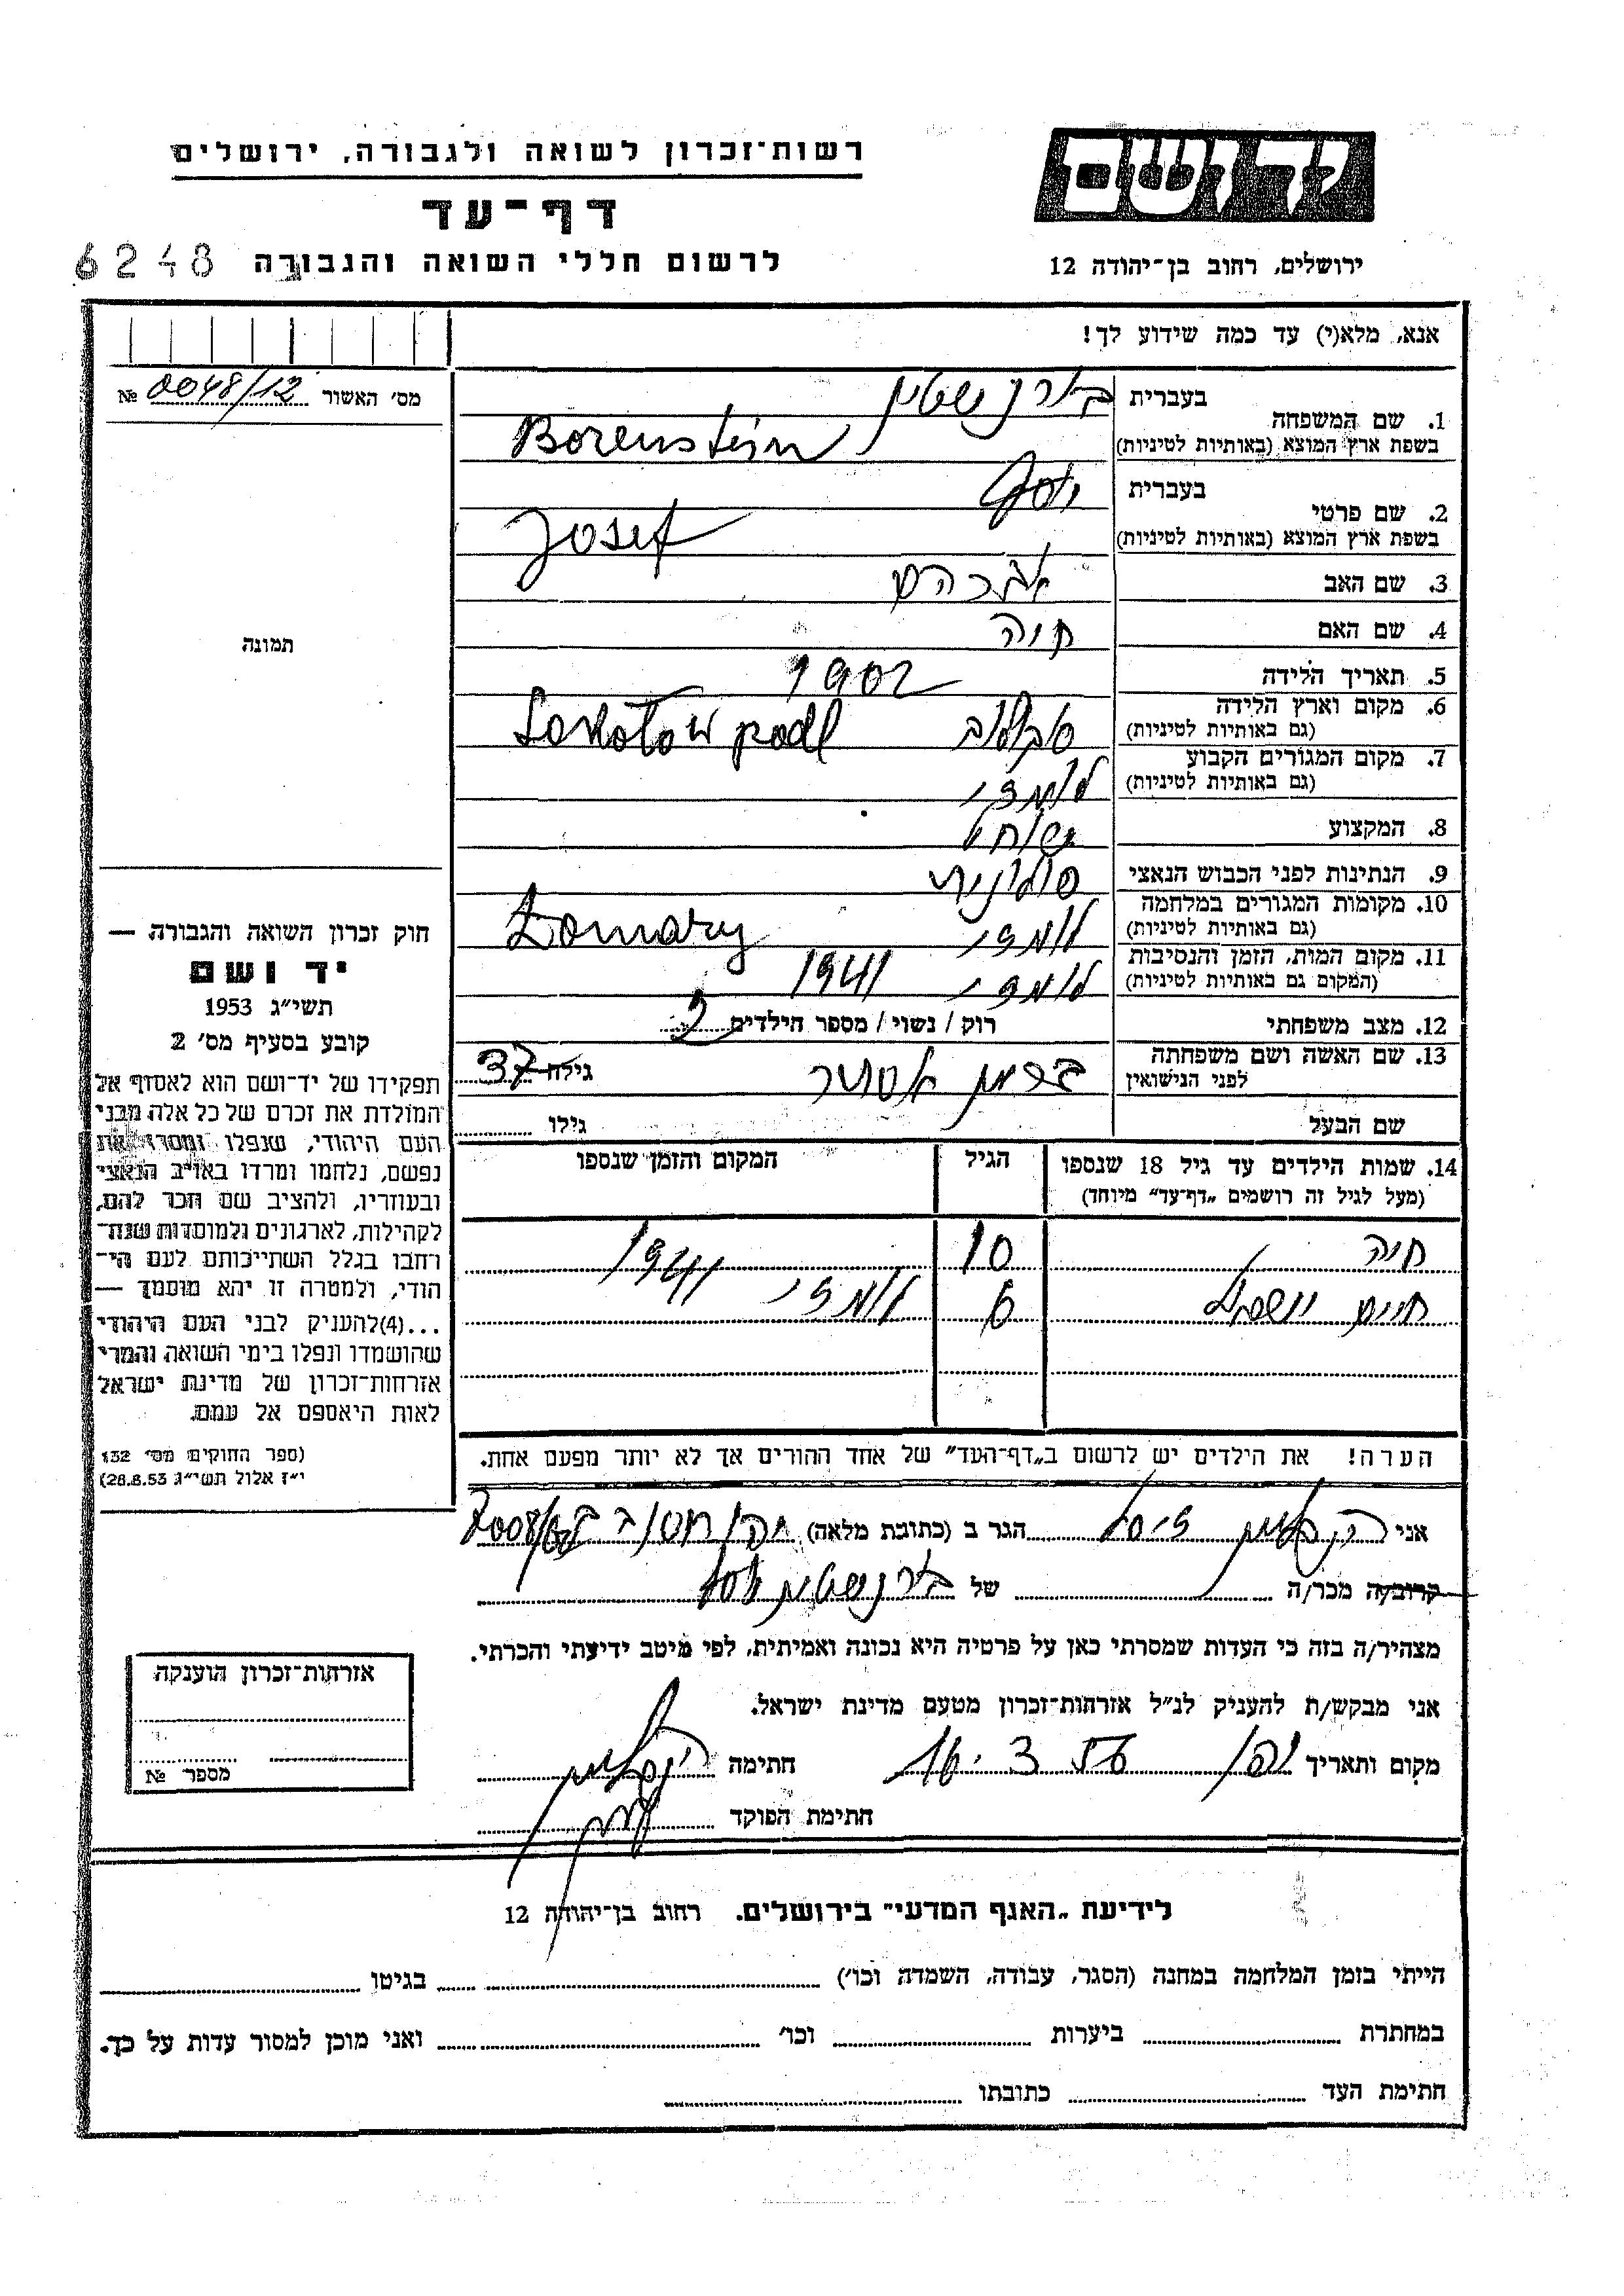 רשות־זכרון לשואה ולגבורה, ירושלים
יד ושם
דף־עד
לרשום חללי השואה והגבורה 6248
ירושלים, רחוב בן־יהודה 12
אנא, מלא(י) עד כמה שידוע לך!
מס׳ האשור 0048/12 №
1. שם המשפחה
בעברית בורנשטיין
בשפת ארץ המוצא (באותיות לטיניות) Borenstein
2. שם פרטי
בעברית יוסף
בשפת ארץ המוצא (באותיות לטיניות) Josef
3. שם האב אברהם
4. שם האם חוה
5. תאריך הלידה 1902
6. מקום וארץ הלידה
(גם באותיות לטיניות) סוקולוב Sokołow podl
7. מקום המגורים הקבוע
(גם באותיות לטיניות) לומזי
8. המקצוע שוחט
9. הנתינות לפני הכבוש הנאצי פולנית
10. מקומות המגורים במלחמה
(גם באותיות לטיניות) לומזי Łomazy
11. מקום המות, הזמן והנסיבות
(המקום גם באותיות לטיניות) לומזי 1941
12. מצב משפחתי רוק / נשוי / מספר הילדים 2
13. שם האשה ושם משפחתה
לפני הנישואין אסתר גילה 37
שם הבעל גילו
14. שמות הילדים עד גיל 18 שנספו
(מעל לגיל זה רושמים „דף־עד״ מיוחד)
הגיל
המקום והזמן שנספו
חוה 10
חיים ישראל 6 לומזי 1941
הערה! את הילדים יש לרשום ב„דף־העד״ של אחד ההורים אך לא יותר מפעם אחת.
תמונה
חוק זכרון השואה והגבורה —
יד ושם
תשי״ג 1953
קובע בסעיף מס׳ 2
תפקידו של יד־ושם הוא לאסוף אל
המולדת את זכרם של כל אלה מבני
העם היהודי, שנפלו ומסרו את
נפשם, נלחמו ומרדו באויב הנאצי
ובעוזריו, ולהציב שם וזכר להם,
לקהילות, לארגונים ולמוסדות שנח־
רבו בגלל השתייכותם לעם הי־
הודי, ולמטרה זו יהא מוסמך —
...(4)להעניק לבני העם היהודי
שהושמדו ונפלו בימי השואה והמרי
אזרחות־זכרון של מדינת ישראל
לאות היאספם אל עמם.
(ספר החוקים מס׳ 132
י״ז אלול תשי״ג 28.8.53)
אני הגר ב (כתובת מלאה)
קרוב/ה מכר/ה של בורנשטיין יוסף
מצהיר/ה בזה כי העדות שמסרתי כאן על פרטיה היא נכונה ואמיתית, לפי מיטב ידיעתי והכרתי.
אני מבקש/ת להעניק לנ״ל אזרחות־זכרון מטעם מדינת ישראל.
מקום ותאריך יפו 16.3.56 חתימה
חתימת הפוקד
אזרחות־זכרון הוענקה
מספר №
לידיעת „האגף המדעי״ בירושלים. רחוב בן־יהודה 12
הייתי בזמן המלחמה במחנה (הסגר, עבודה, השמדה וכו׳) בגיטו
במחתרת ביערות וכו׳ ואני מוכן למסור עדות על כך.
חתימת העד כתובתו